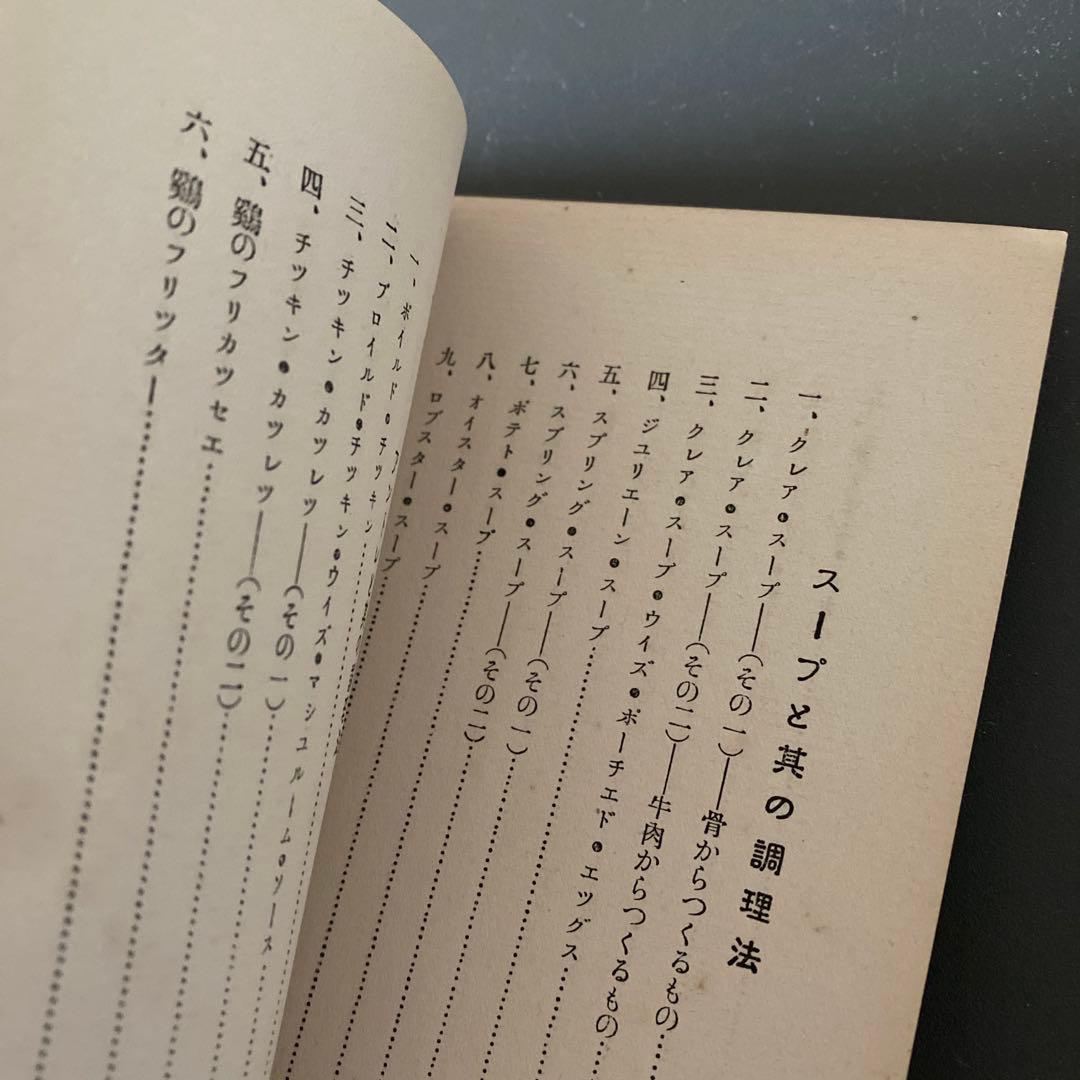 スープと其の調理法
一、クレア・スープ――(その一)――骨からつくるもの……
二、クレア・スープ――(その二)――牛肉からつくるもの……
三、クレア・スープ・ウイズ・ポーチエド・エツグス……
四、ジユリエーン・スープ……
五、スプリング・スープ――(その一)……
六、スプリング・スープ――(その二)……
七、ポテト・スープ……
八、オイスター・スープ……
九、ロブスター・スープ……
一、ボイルド・チツキン
二、ブロイルド・チツキン・ウイズ・マシユルーム・ソース
三、チツキン・カツレツ――(その一)……
四、チツキン・カツレツ――(その二)……
五、鷄のフリカツセエ……
六、鷄のフリツター……